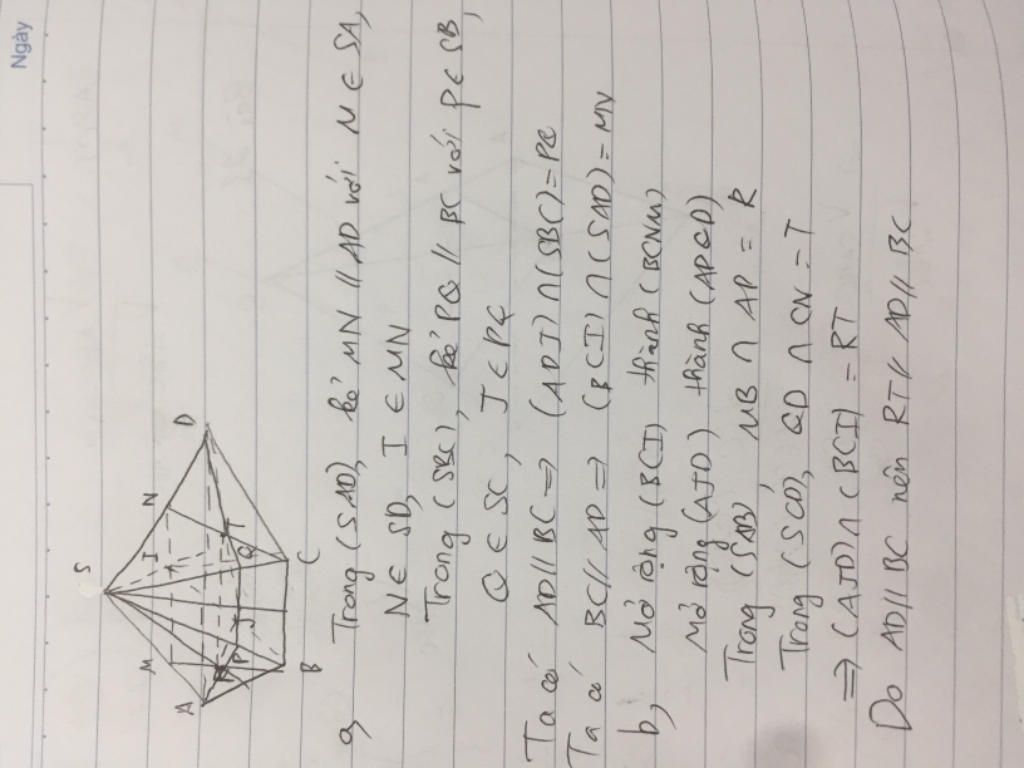 Ngày
S
M
I
N
A
D
R
P
J
Q
T
B
C
a, Trong (SAD), kẻ MN // AD với M ∈ SA,
N ∈ SD, I ∈ MN
Trong (SBC), kẻ PQ // BC với P ∈ SB,
Q ∈ SC, J ∈ PQ
Ta có AD // BC => (ADJ) ∩ (SBC) = PQ
Ta có BC // AD => (BCI) ∩ (SAD) = MN
b, Mở rộng (BCI) thành (BCNM)
Mở rộng (AJD) thành (APQD)
Trong (SAB), MB ∩ AP = R
Trong (SCD), QD ∩ CN = T
=> (AJD) ∩ (BCI) = RT
Do AD // BC nên RT // AD // BC